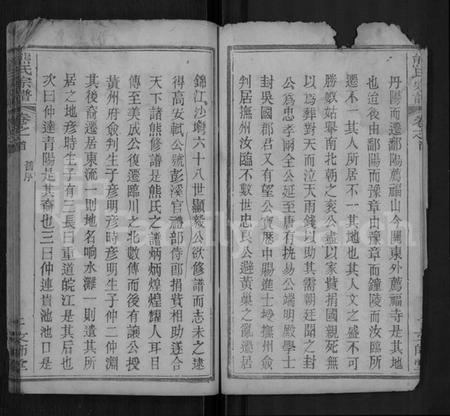 熊氏宗譜
卷之首
丹陽而遷鄱陽薦福山今關東外薦福寺是其地
也迨後由鄱陽而豫章由豫章而鍾陵而汝臨所
遷不一其人所居不一其地也其人文之盛不可
勝數姑舉南北朝之袞公盡以家貲捐國親死無
以為葬對天而泣天雨錢以助其需朝廷聞之封
公為忠孝爾全公延至唐有挑易公端明殿學士
封吳國郡君又有望公寶歷中賜進士授撫州僉
判居撫州汝臨不數世忠良公避黃巢之亂遷居
錦江沙塘六十八世顯毅公欲修譜而志未之逮
得高安軾公號彭溪官禮部侍郎捐貲相助遂合
天下諸熊修譜是熊氏之譜炳炳煌煌耀人耳目
傳至美成公後遷臨川之北數傳而後有讓公授
黃州府僉判生子彥明彥時彥明生子仲一仲淵
其後裔遷居東流一則地名响水灘一則遺其所
居之地彥時生子有三長曰重道皖江是其後也
次曰仲達青陽是其裔也三曰仲連貴池池口是
熊氏宗譜
卷之首
舊序
文師堂